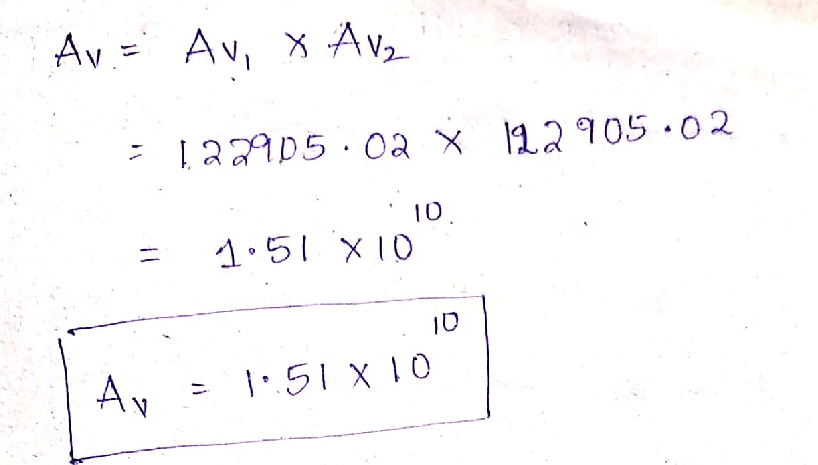 Av = Av₁ × Av₂
= 122905.02 × 122905.02
= 1.51 × 10¹⁰
Av = 1.51 × 10¹⁰